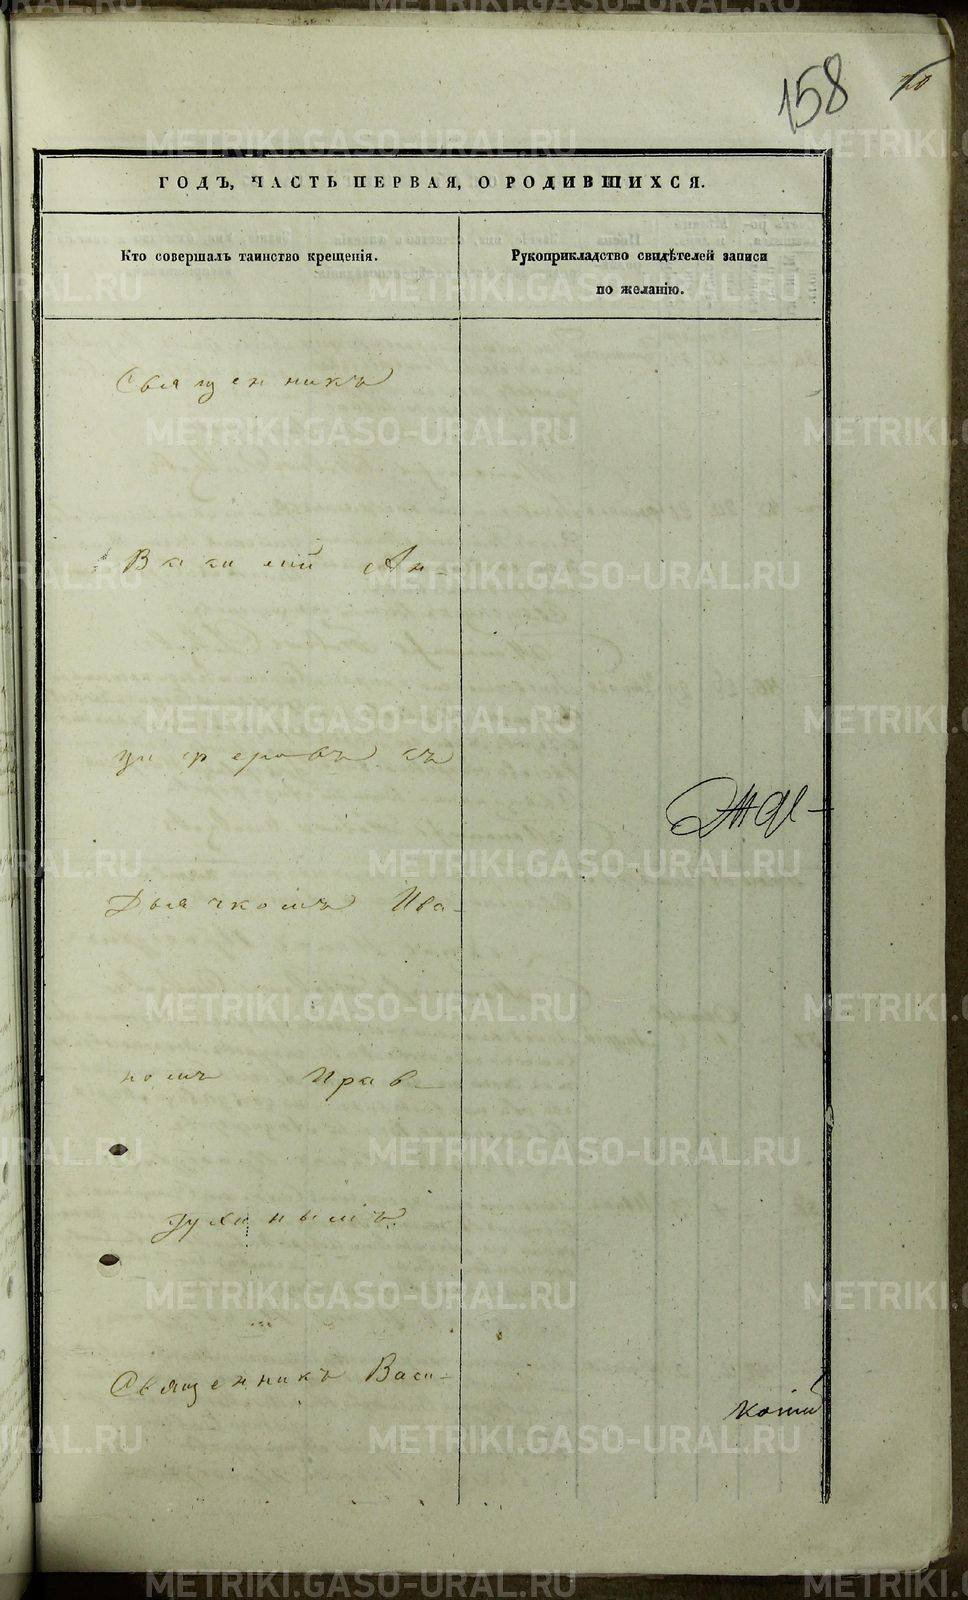 158
ГОДЪ, ЧАСТЬ ПЕРВАЯ, О РОДИВШИХСЯ.
Кто совершалъ таинство крещенія.
Рукоприкладство свидѣтелей записи
по желанію.
Священникъ
Василій Ан-
циферовъ съ
Дьячкомъ Ива-
номъ Прав-
духинымъ
Священникъ Васи-
METRIKI.GASO-URAL.RU